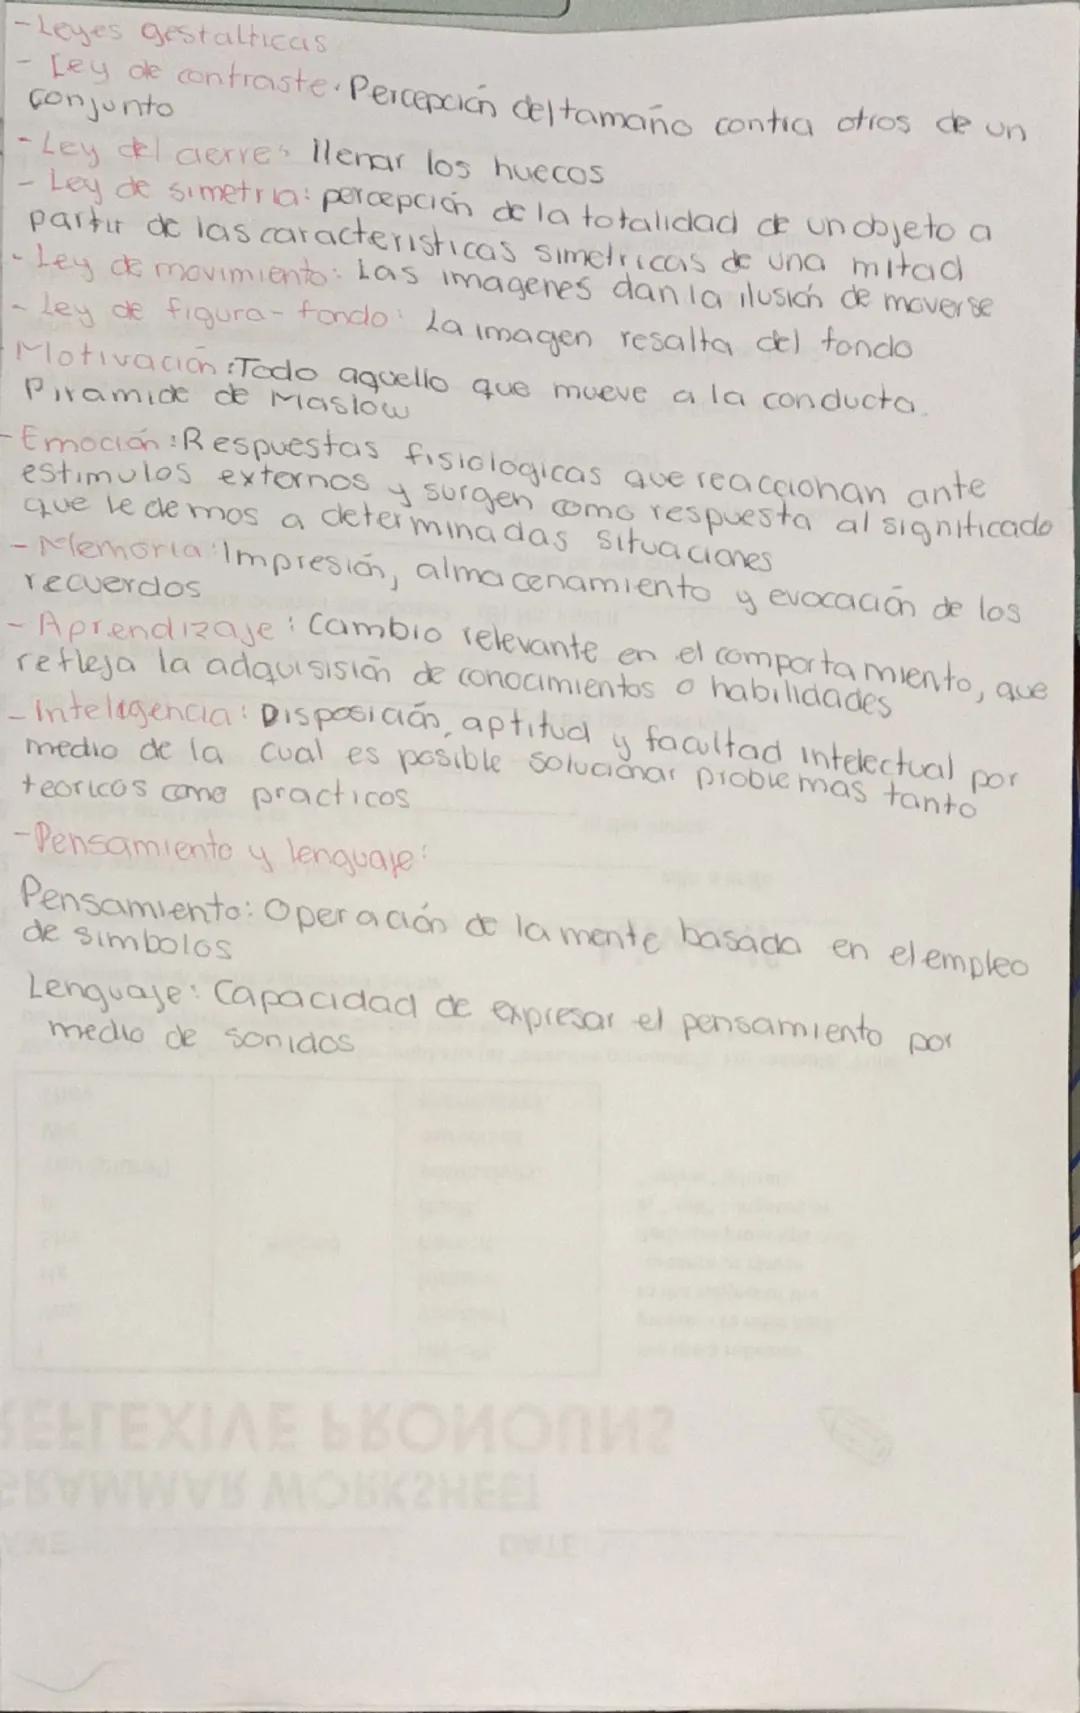 -Leyes gestalticas
- Ley de contraste: Percepción del tamaño contra otros de un
conjunto
- Ley del cierre: llenar los huecos
- Ley de simetria: percepción de la totalidad de un objeto a
partir de las caracteristicas simetricas de una mitad
- Ley de movimiento: Las imagenes dan la ilusión de moverse
- Ley de figura-fondo: La imagen resalta del fondo
Motivación: Todo aquello que mueve a la conducta.
Piramide de Maslow
-Emoción: Respuestas fisiologicas que reaccionan ante
estimulos externos y surgen como respuesta al significado
que le demos a determinadas situaciones
-Memoria: Impresión, almacenamiento y evocación de los
recuerdos
- Aprendizaje: Cambio relevante en el comportamiento, que
refleja la adquisisión de conocimientos o habilidades
- Inteligencia: Disposición, aptitud y facultad intelectual por
medio de la cual es posible solucionar problemas tanto
teoricos como practicos
-Pensamiento y lenguaje:
Pensamiento: Operación de la mente basada en el empleo
de simbolos
Lenguaje: Capacidad de expresar el pensamiento por
medio de sonidos
REFLEXIVE PRONOUNS
GRAMMAR WORKSHEET
DATE